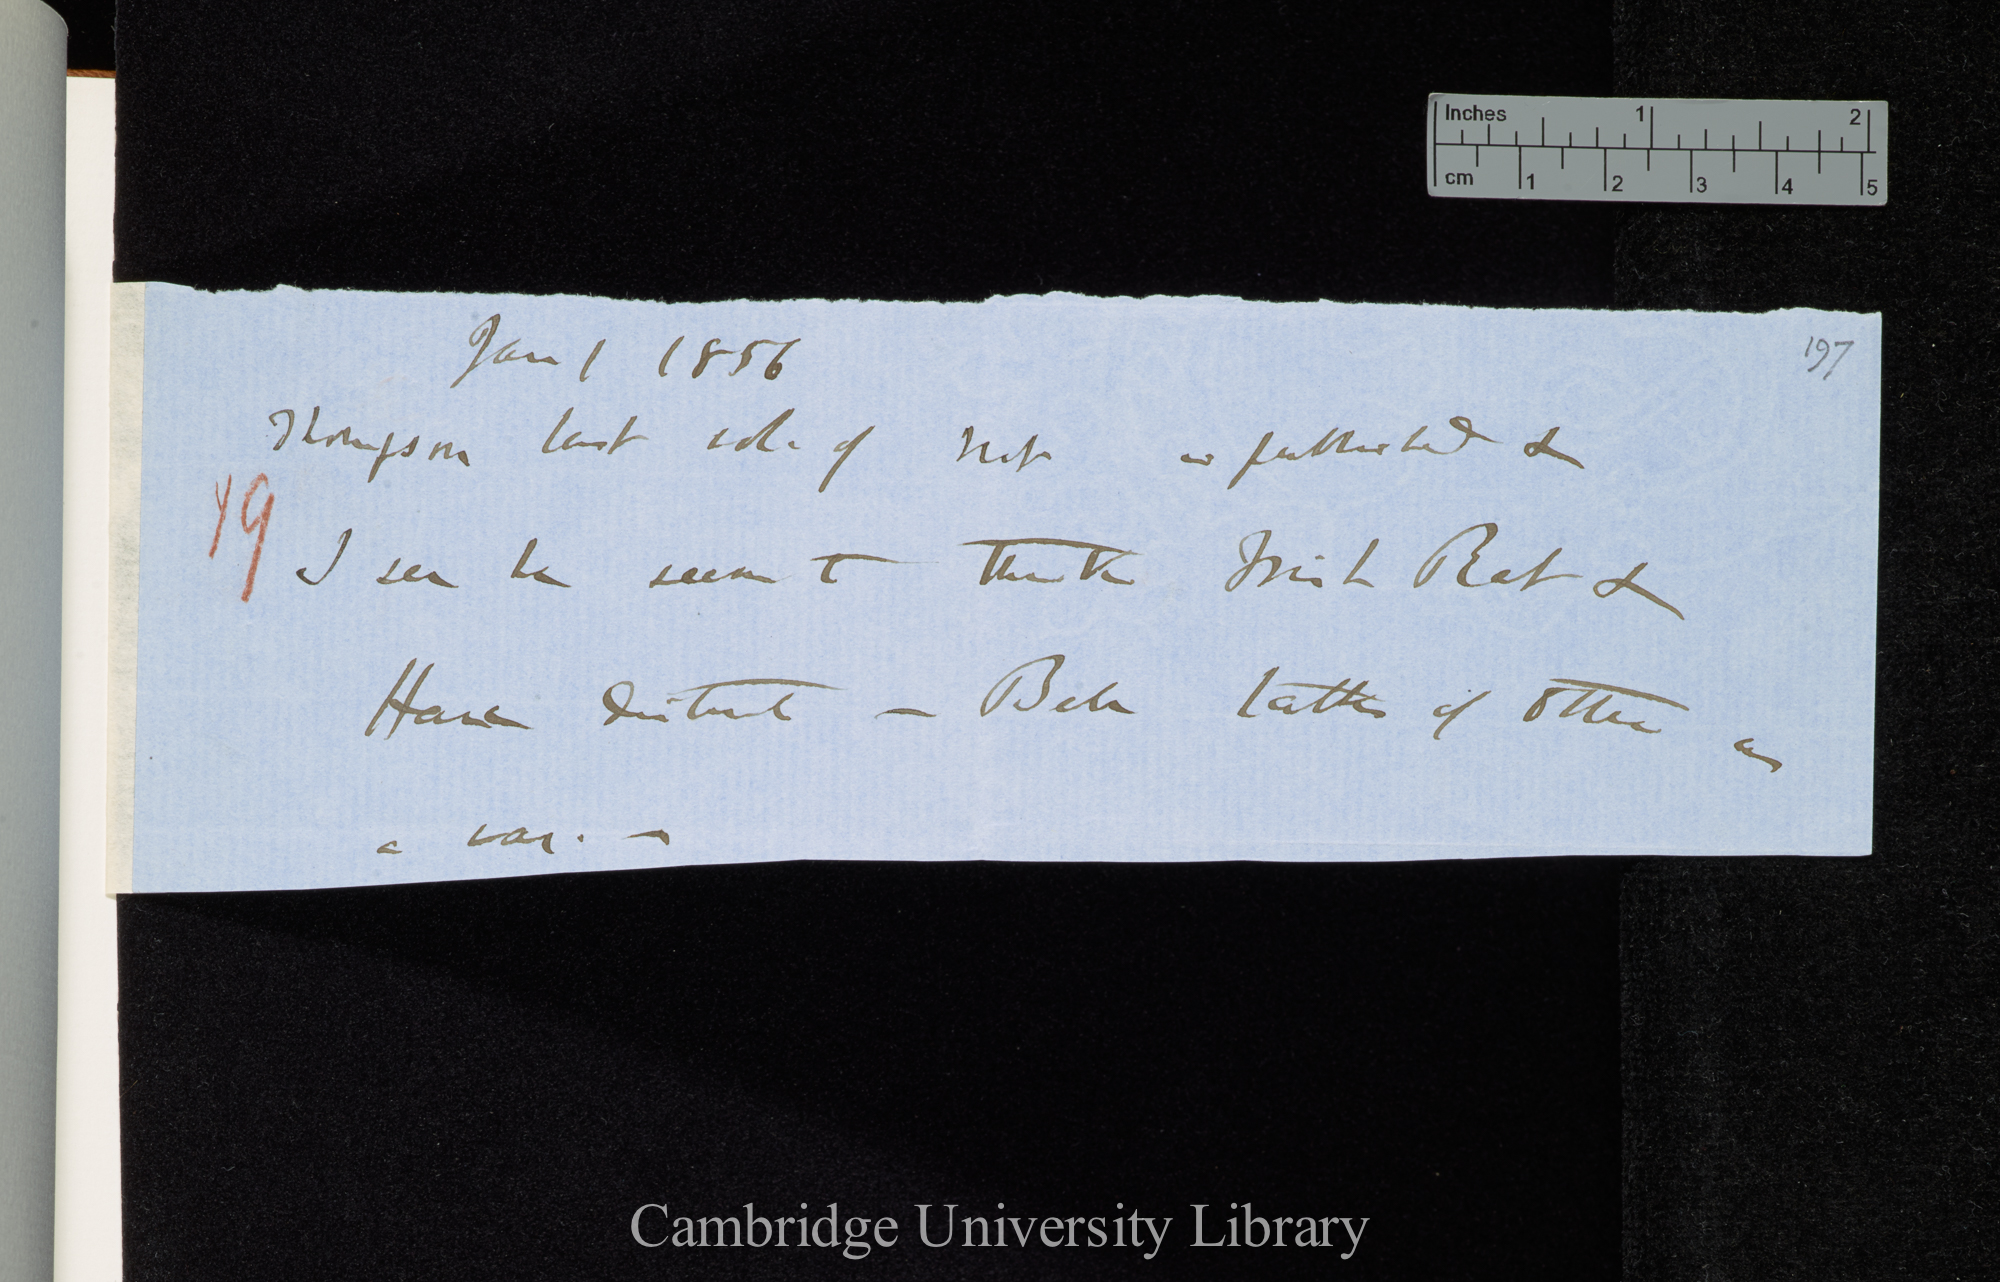 Inches 1 2
cm 1 2 3 4 5
197
Jan 1 1856
Thompson last vol. of Nat is published &
19
I see he seems to think Irish Rat &
Hare distinct — Bell latter of otter as
a var. —
Cambridge University Library